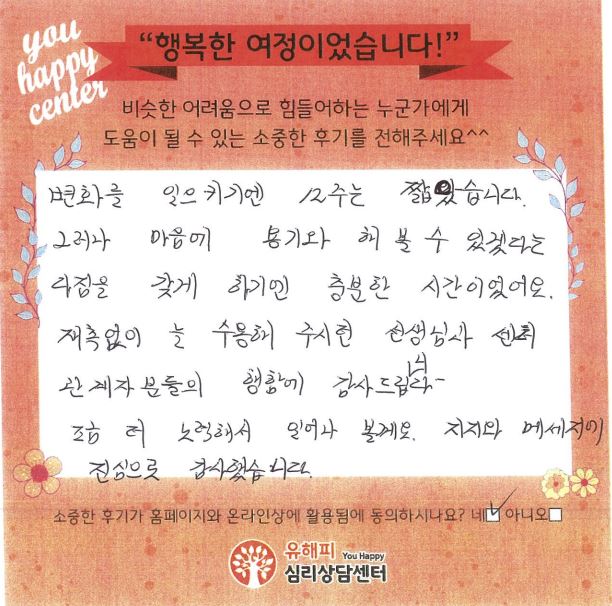 you
happy
center
“행복한 여정이었습니다!”
비슷한 어려움으로 힘들어하는 누군가에게
도움이 될 수 있는 소중한 후기를 전해주세요^^
변화를 일으키기엔 12주는 짧았습니다.
그러나 마음에 용기와 해 볼 수 있겠다는
다짐을 갖게 하기엔 충분한 시간이었어요.
재촉없이 늘 수용해 주시던 선생님과 센터
관계자 분들의 행함에 감사드립니다~
조금 더 노력해서 일어나 볼게요. 지지와 메세지에
진심으로 감사했습니다.
소중한 후기가 홈페이지와 온라인상에 활용됨에 동의하시나요? 네 아니오
유해피 You Happy
심리상담센터